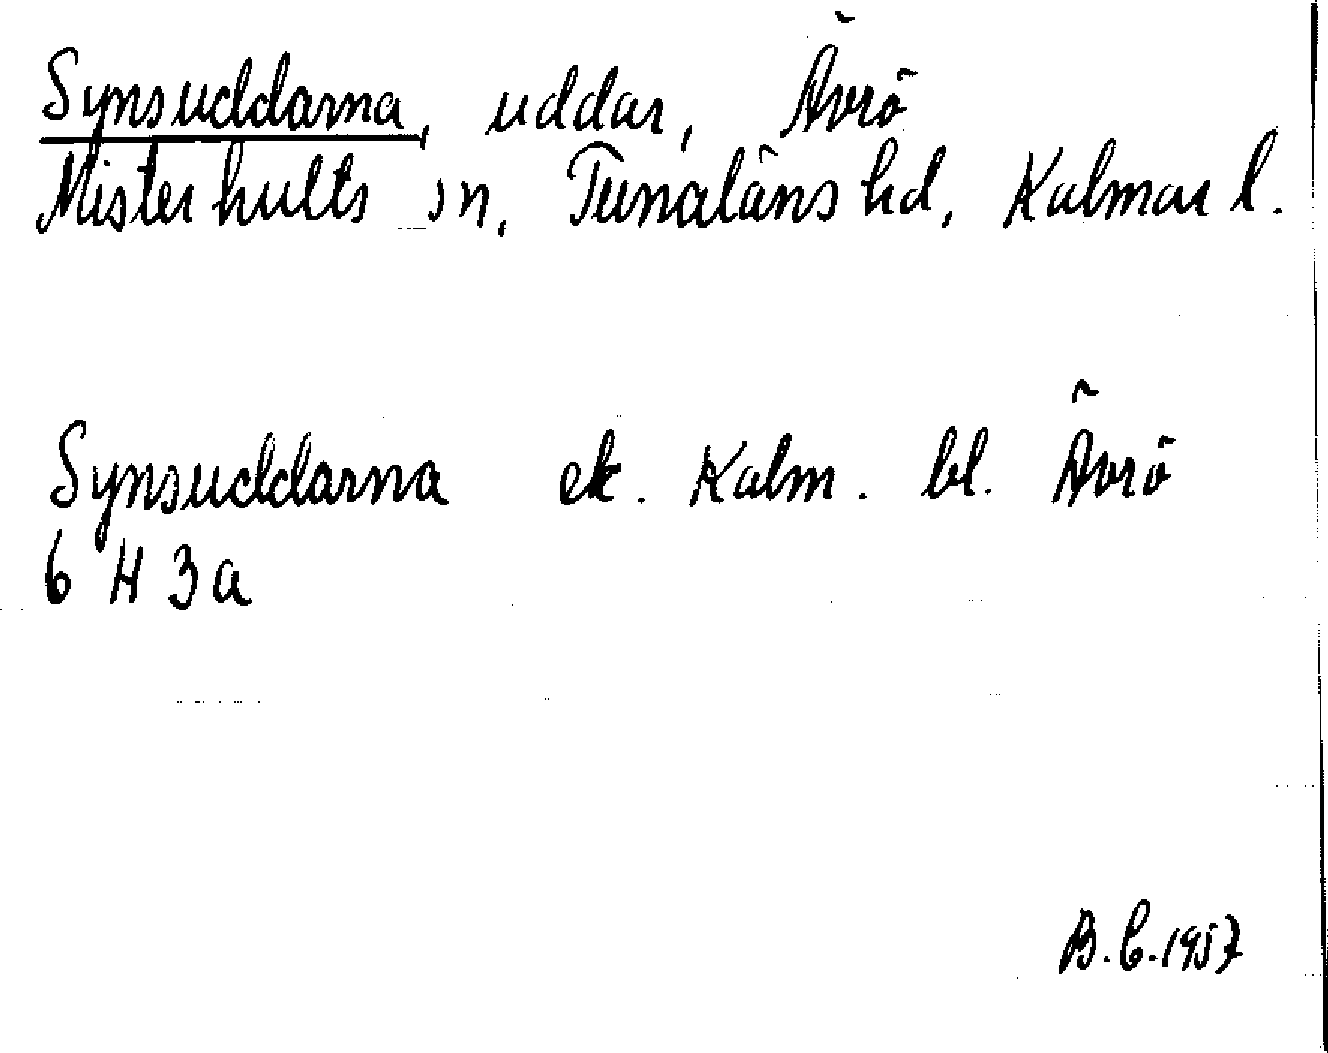 Synsuddarna, uddar, Ävrö
Misterhults sn, Tunaläns hd, Kalmar l.
Synsuddarna ek. Kalm. bl. Ävrö
6 H 3a
B.C.1957